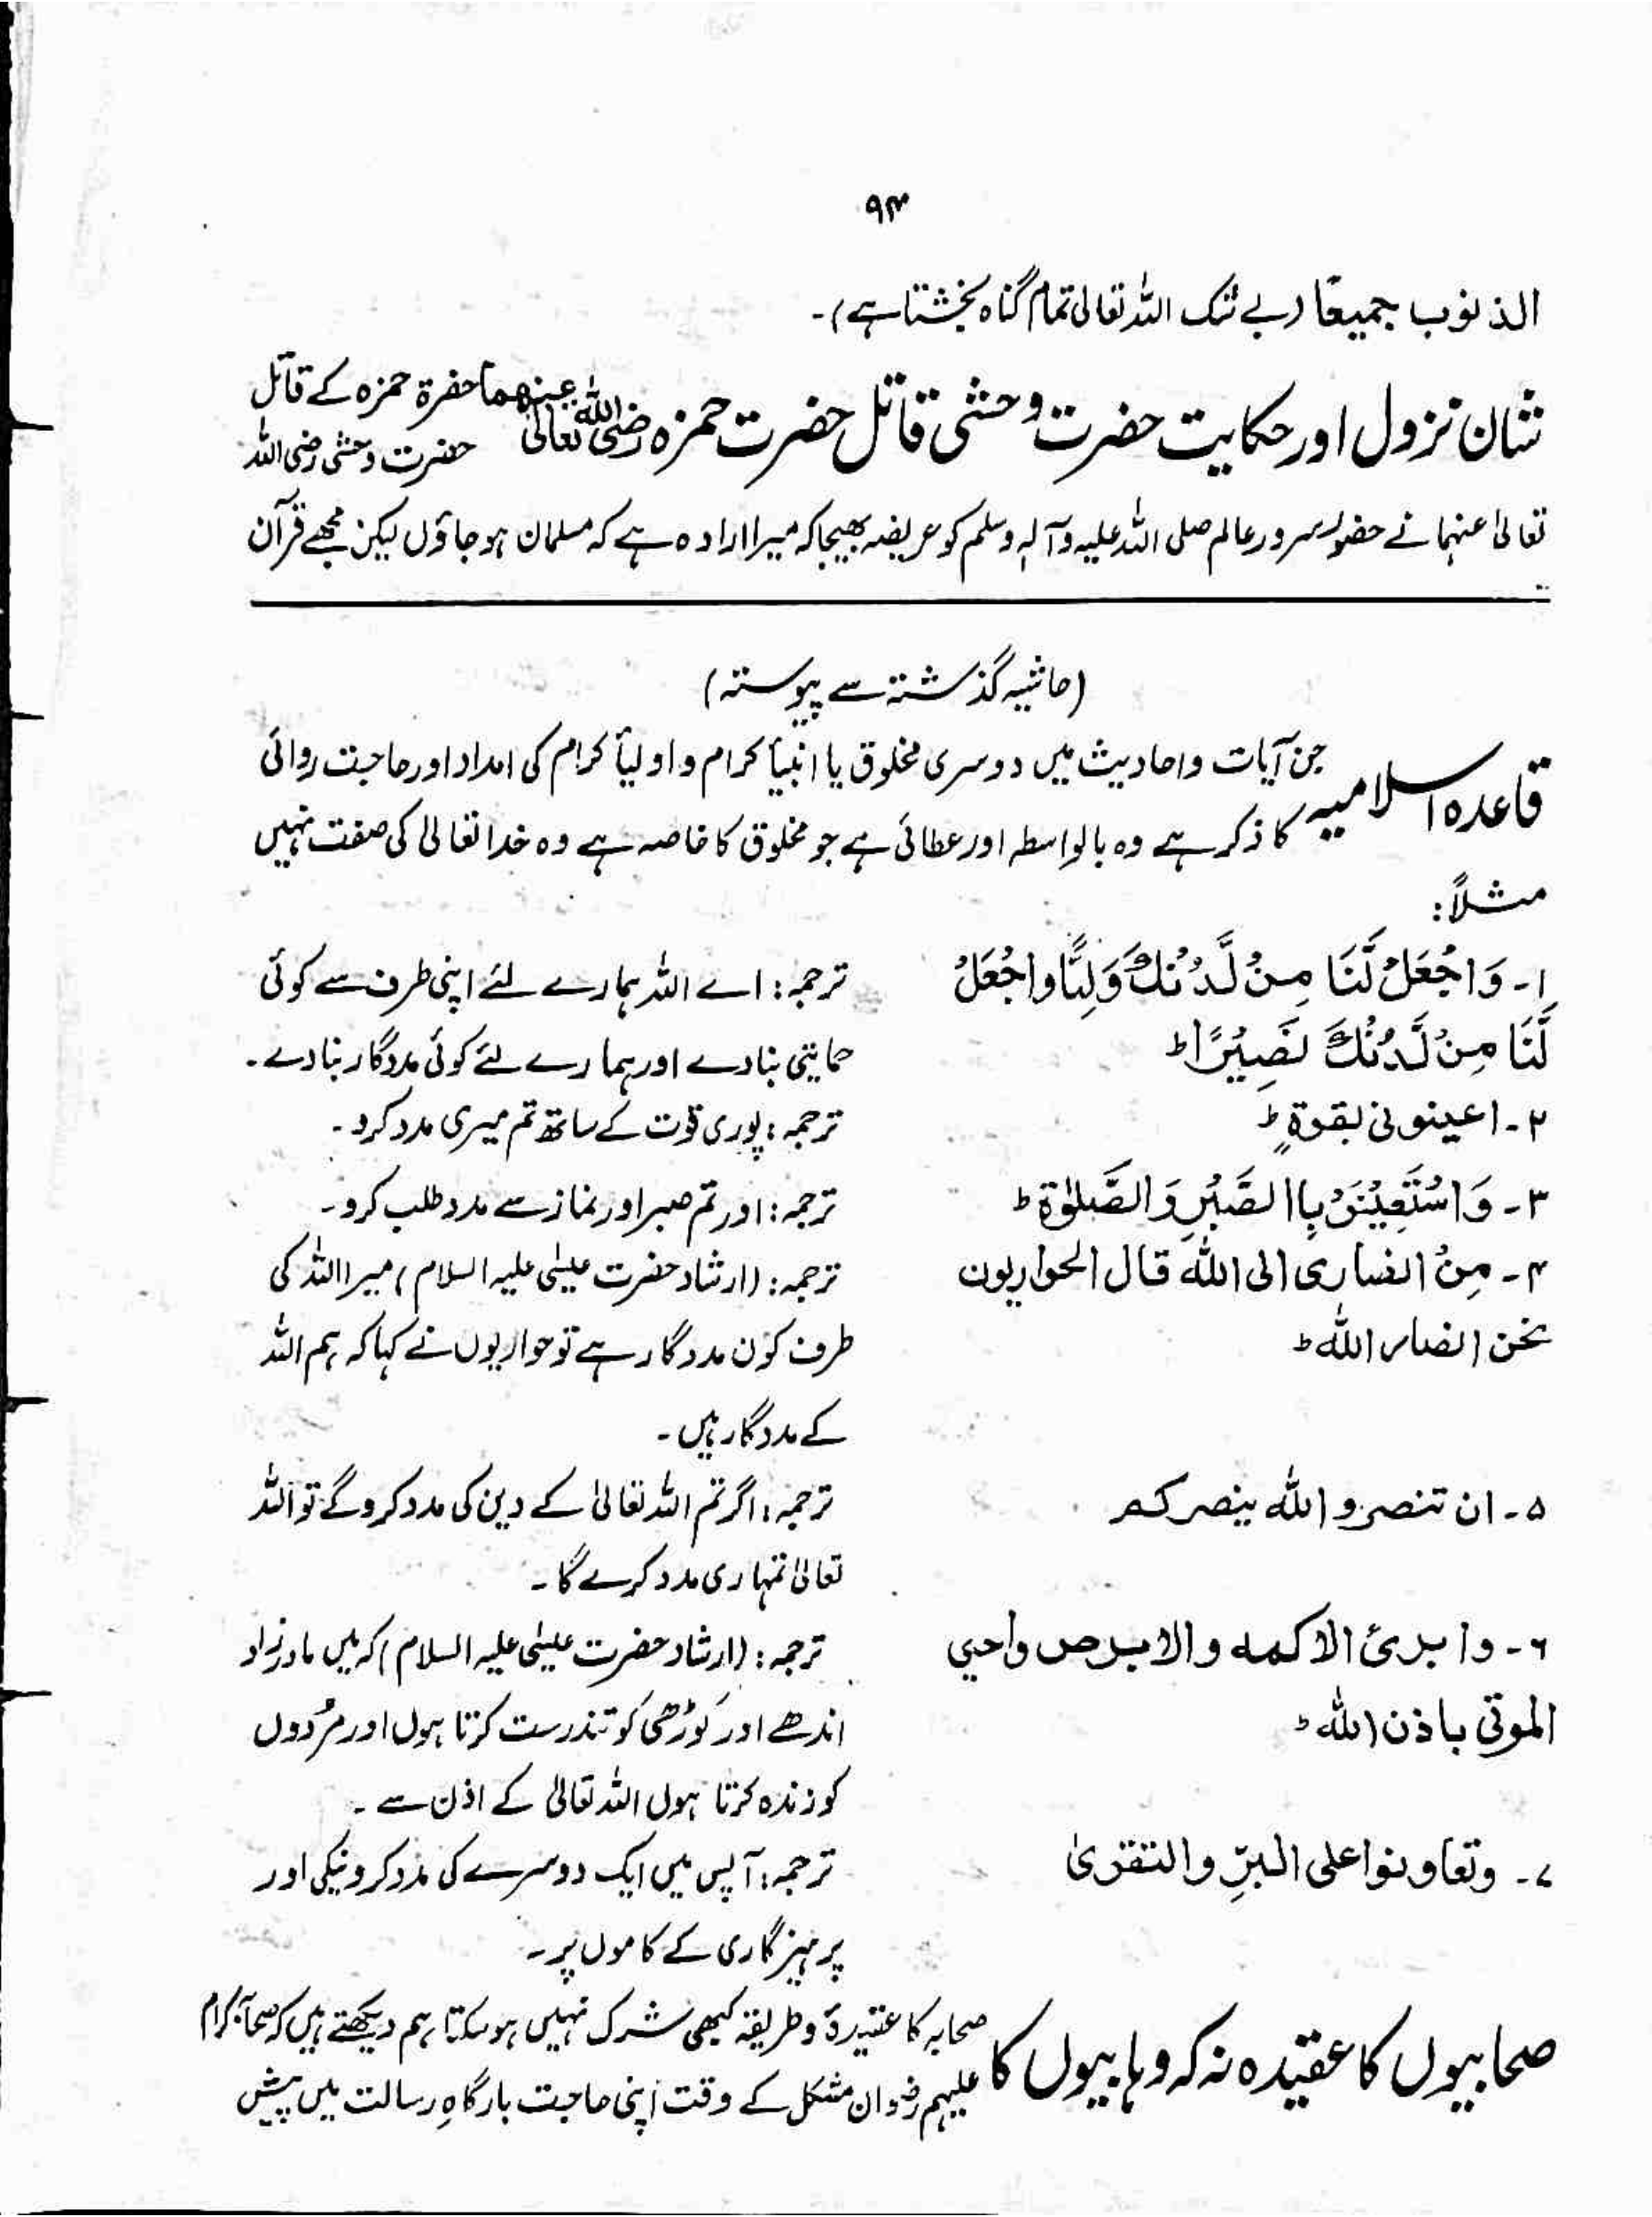 ۹۳
الذنوب جمیعًا (بے شک اللہ تعالیٰ تمام گناہ بخشتا ہے)۔
شان نزول اور حکایت حضرت وحشی قاتل حضرت حمزہ رضی اللہ تعالیٰ عنہما حضرۃ حمزہ کے قاتل
حضرت وحشی رضی اللہ
تعالیٰ عنہما نے حضور سرور عالم صلی اللہ علیہ وآلہٖ وسلم کو عریضہ بھیجا کہ میرا ارادہ ہے کہ مسلمان ہو جاؤں لیکن مجھے قرآن
(حاشیہ گذشتہ سے پیوستہ)
قاعدہ اسلامیہ جن آیات واحادیث میں دوسری مخلوق یا انبیأ کرام و اولیأ کرام کی امداد اور حاجت روائی
کا ذکر ہے وہ بالواسطہ اور عطائی ہے جو مخلوق کا خاصہ ہے وہ خدا تعالیٰ کی صفت نہیں
مثلاً:
۱۔ وَاجْعَلْ لَّنَا مِنْ لَّدُنْكَ وَلِيًّا واجْعَلْ ترجمہ: اے اللہ ہمارے لئے اپنی طرف سے کوئی
لَّنَا مِنْ لَّدُنْكَ نَصِيْرًا ط حمایتی بنا دے اور ہمارے لئے کوئی مددگار بنا دے۔
۲۔ اعینونی بقوۃٍ ط ترجمہ: پوری قوت کے ساتھ تم میری مدد کرو۔
۳۔ وَاسْتَعِيْنَوْ بِاالصَّبْرِ وَالصَّلٰوۃِ ط ترجمہ: اور تم صبر اور نماز سے مدد طلب کرو۔
۴۔ مِنْ انصاری الی اللہ قال الحواریون ترجمہ: (ارشاد حضرت عیسٰی علیہ السلام) میرا اللہ کی
نحن انصار اللہ ط طرف کون مددگار ہے تو حواریوں نے کہا کہ ہم اللہ
کے مددگار ہیں۔
۵۔ ان تنصرو اللہ ینصرکم ترجمہ: اگر تم اللہ تعالیٰ کے دین کی مدد کرو گے تو اللہ
تعالیٰ تمہاری مدد کرے گا۔
۶۔ وابرئ الاکمہ والابرص واحیی ترجمہ: (ارشاد حضرت عیسٰی علیہ السلام) کہ میں مادر زاد
الموتی باذن اللہ ط اندھے اور کوڑھی کو تندرست کرتا ہوں اور مرُدوں
کو زندہ کرتا ہوں اللہ تعالیٰ کے اذن سے۔
۷۔ وتعاونوا علی البرِّ والتقویٰ ترجمہ: آپس میں ایک دوسرے کی مدد کرو نیکی اور
پرہیزگاری کے کاموں پر۔
صحابیوں کا عقیدہ نہ کہ وہابیوں کا صحابہ کا عقیدۃ و طریقہ کبھی شرک نہیں ہو سکتا ہم دیکھتے ہیں کہ صحابہ کرام
علیہم رضوان مشکل کے وقت اپنی حاجت بارگاہِ رسالت میں پیش